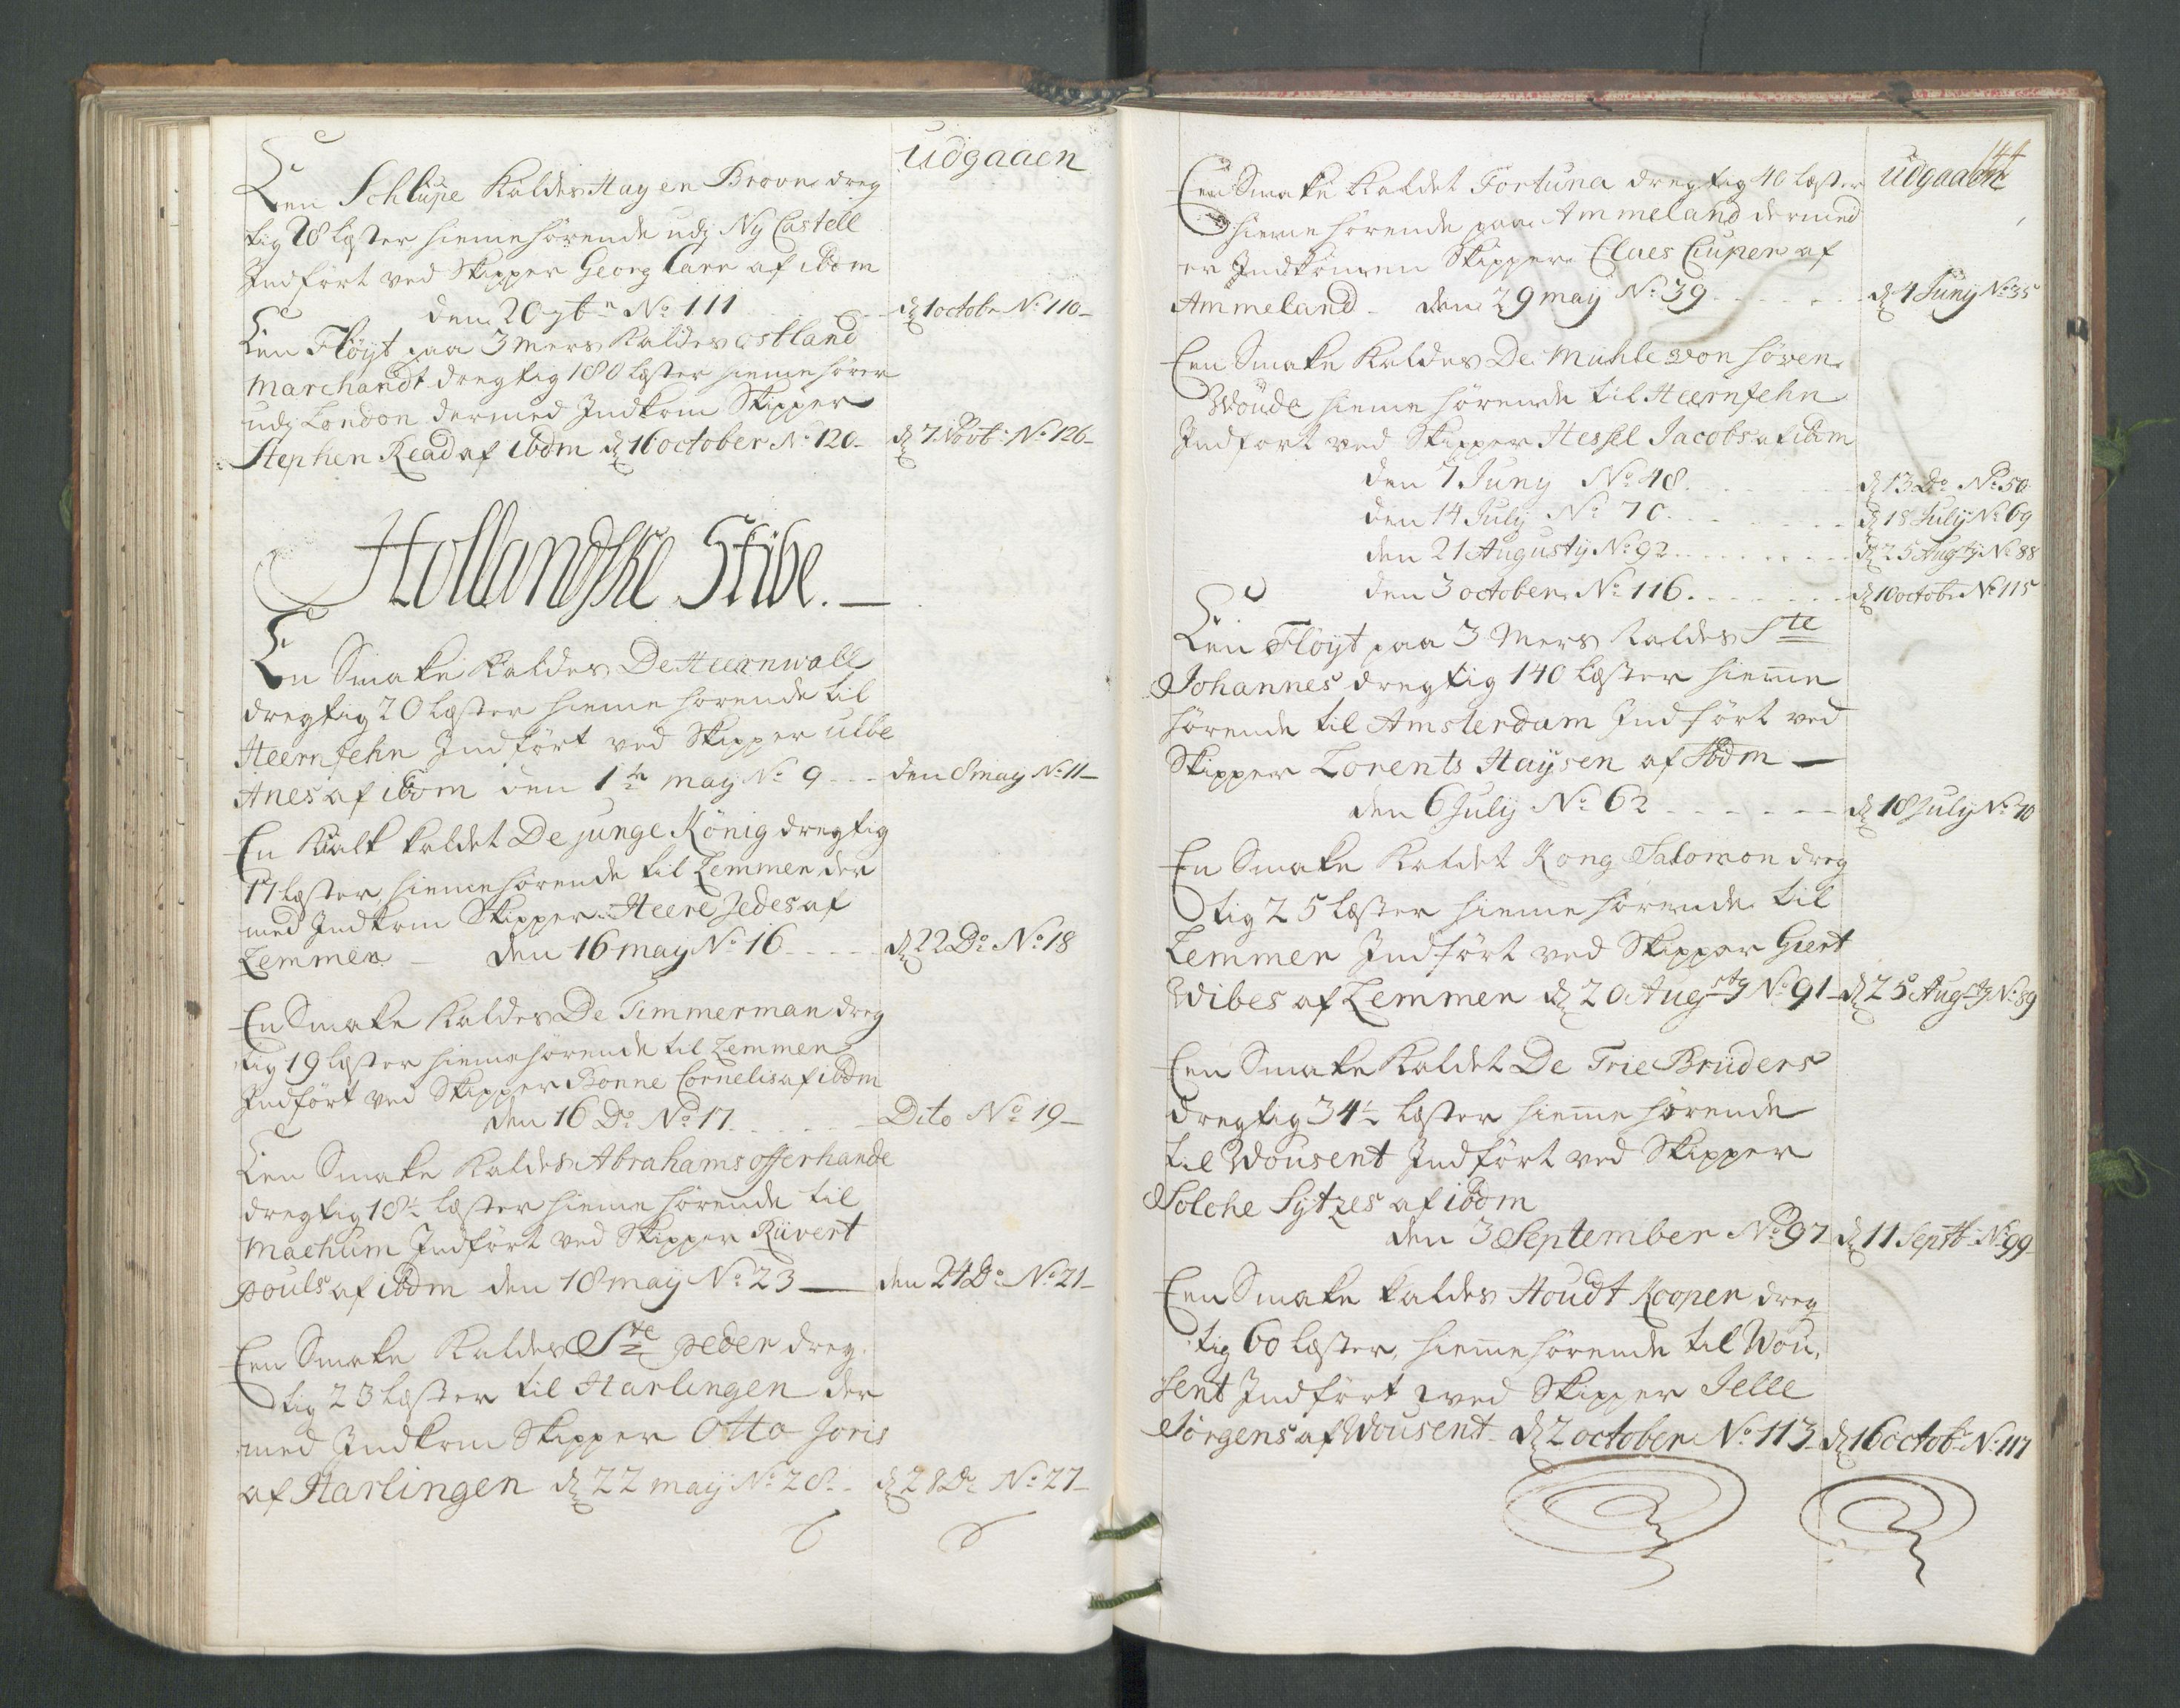 Udgaaen
Een Schlüpe Kaldes Hay en Brovn dreg
tig 28 læster hiemehörende udj Ny Castell
Indfört ved Skipper Georg Carr af ibdm
den 20 7br No 111 d 1 octobr No 110
Een Flöyt paa 3 Mers Kaldes ostland
Marchandt dregtig 180 læster hiemehörer
udj London dermed Indkom Skipper
Stephen Read af ibdm d 16 october No 120 d 7 Novb: No 126
Hollandske Skibe.
En Smake Kaldes De Heernwall
dregtig 20 læster hieme hörende til
Heernfehn Indfört ved Skipper Ulbe
Anes af ibdm den 1te may No 9 den 8 may No 11
En Kalk kaldet De junge König dregtig
17 læster hiemehörende til Lemmer der
med Indkom Skipper Heere Jedes af
Lemmer den 16 may No 16 d 22 Do No 18
En Smake Kaldes De Timmerman dreg
tig 19 læster hiemehörende til Lemmer
Indfört ved Skipper Bonne Cornelis af ibdm
den 16 Do No 17 Dito No 19
Een Smake Kaldes Abrahams offerhande
dregtig 18½ læster hieme hörende til
Machum Indfört ved Skipper Rüvert
pouls af ibdm den 18 may No 23 den 24 Do No 21
Een Smake Kaldes Ste peder dreg
tig 23 læster til Harlingen der
med Indkom Skipper Otto Joris
af Harlingen d 22 may No 28 d 28 Do No 27
144
Een Smake Kaldet Fortuna dregtig 40 læster Udgaaen
hieme hörende paa Ammeland dermed
er Indkommen Skipper Claes Cuper af
Ammeland den 29 may No 39 d 4 Juny No 35
Een Smake Kaldes De Muhle von höven
Woude hieme hörende til Heernfehn
Indfört ved Skipper Hessel Jacobs af ibdm
den 7 Juny No 48 d 13 Do No 50
den 14 July No 70 d 18 July No 69
den 21 Augusty No 92 d 25 Augsty No 88
den 3 october No 116 d 10 octobr No 115
Een Flöyt paa 3 Mers Kaldes Ste
Johannes dregtig 140 læster hieme
hörende til Amsterdam Indfört ved
Skipper Lorents Haysen af Ibdm
den 6 July No 62 d 18 July No 70
En Smake Kaldet Kong Salomon dreg
tig 25 læster hieme hörende til
Lemmer Indfört ved Skipper Giert
Wibes af Lemmer d 20 Augsty No 91 d 25 Augsty No 89
Een Smake Kaldet De Trie Brüders
dregtig 34½ læster hieme hörende
til Wousent Indfört ved Skipper
Solche Sytzes af ibdm
den 3 September No 97 d 11 Septb No 99
Een Smake kaldes Houdt Kooper dreg
tig 60 læster, hiemehörende til Wou,
sent Indfört ved Skipper Jelle
Jörgens af Wousent d 2 october No 113 d 16 octobr No 117